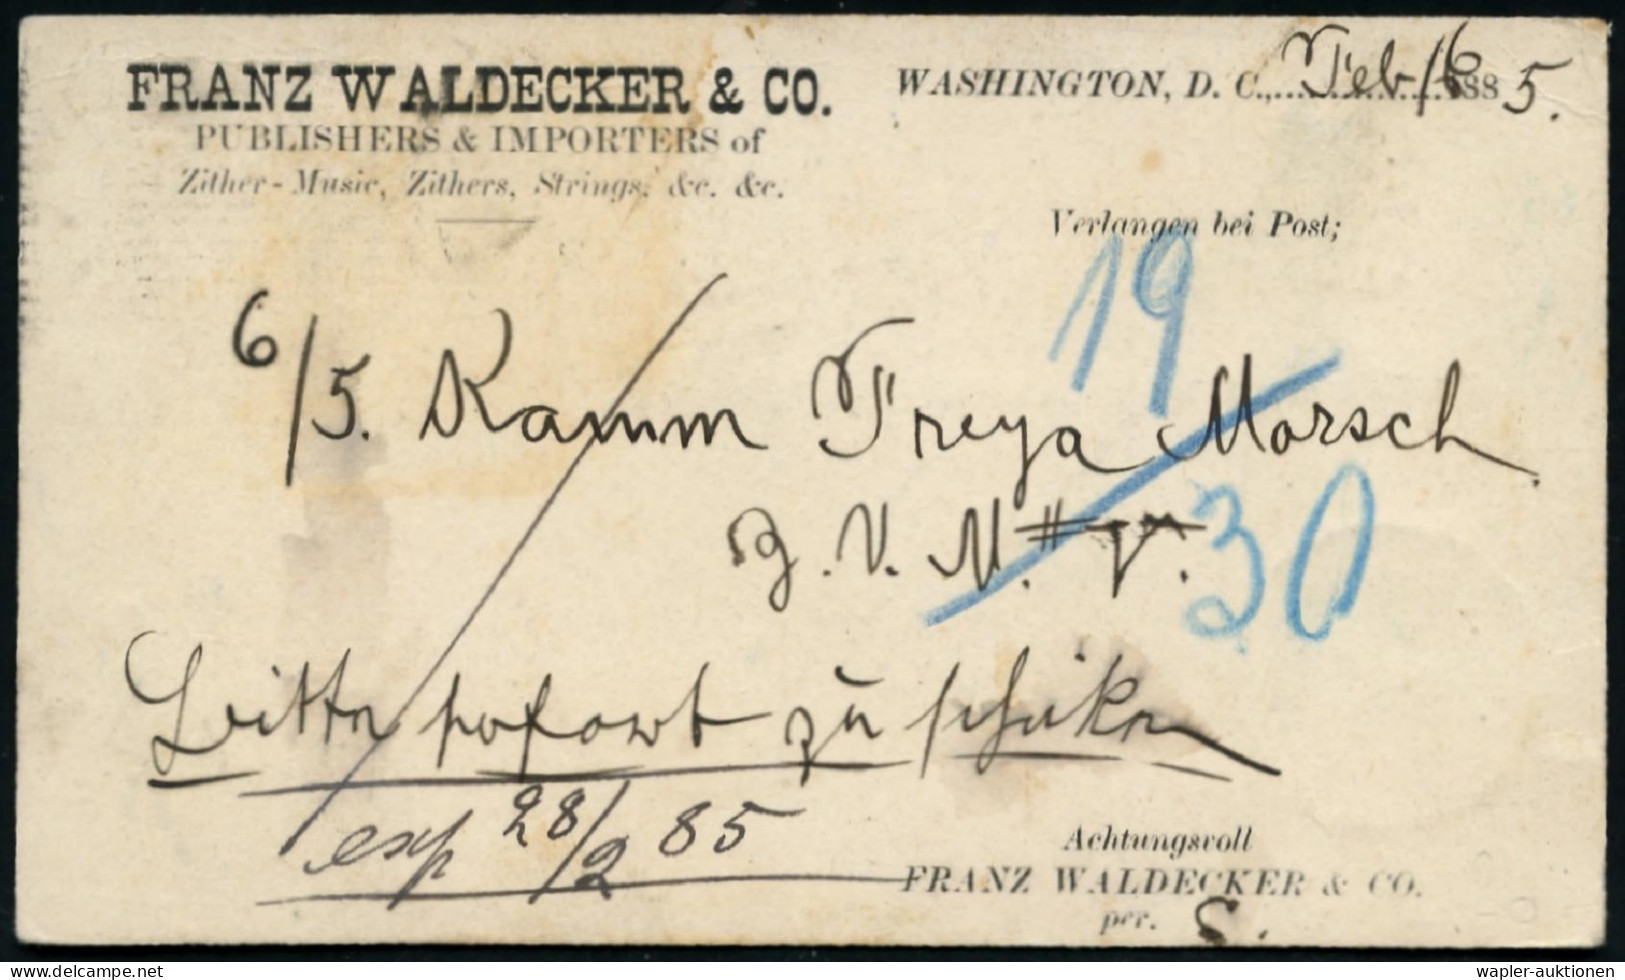 FRANZ WALDECKER & CO.
PUBLISHERS & IMPORTERS of
Zither-Music, Zithers, Strings, &c. &c.
WASHINGTON, D. C., Feb 16 1885.
Verlangen bei Post;
19
6/5. Kamm Freya Marsch
30
Bitte sofort zu schicken
exp 28/2 85
Achtungsvoll
FRANZ WALDECKER & CO.
per. S.
wapler-auktionen